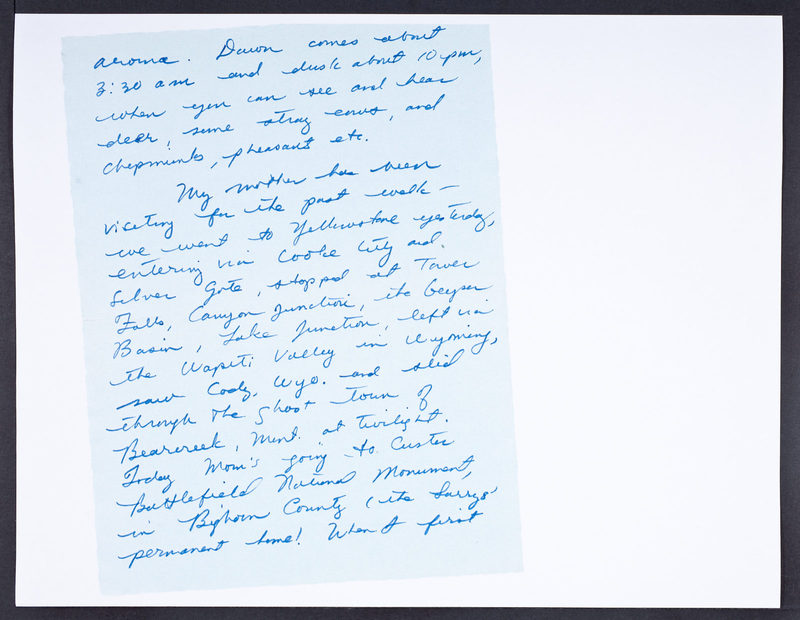 aroma. Dawn comes about
3:30 am and dusk about 10 pm,
when you can see and hear
deer, some stray cows, and
chepmunks, pheasant etc.
My mother has been
visiting for the past week –
we went to Yellowstone yesterday,
entering via Cooke City and
Silver Gate, stopped at Tower
Falls, Canyon Junction, the Geyser
Basin, Lake Junction, left via
the Wapiti Valley in Wyoming,
saw Cody, Wyo. and slid
through the ghost town of
Bearcreek, Mont. at twilight.
Today Mom's going to Custer
Battlefield National Monument,
in Bighorn County (the
permanent home! When I first